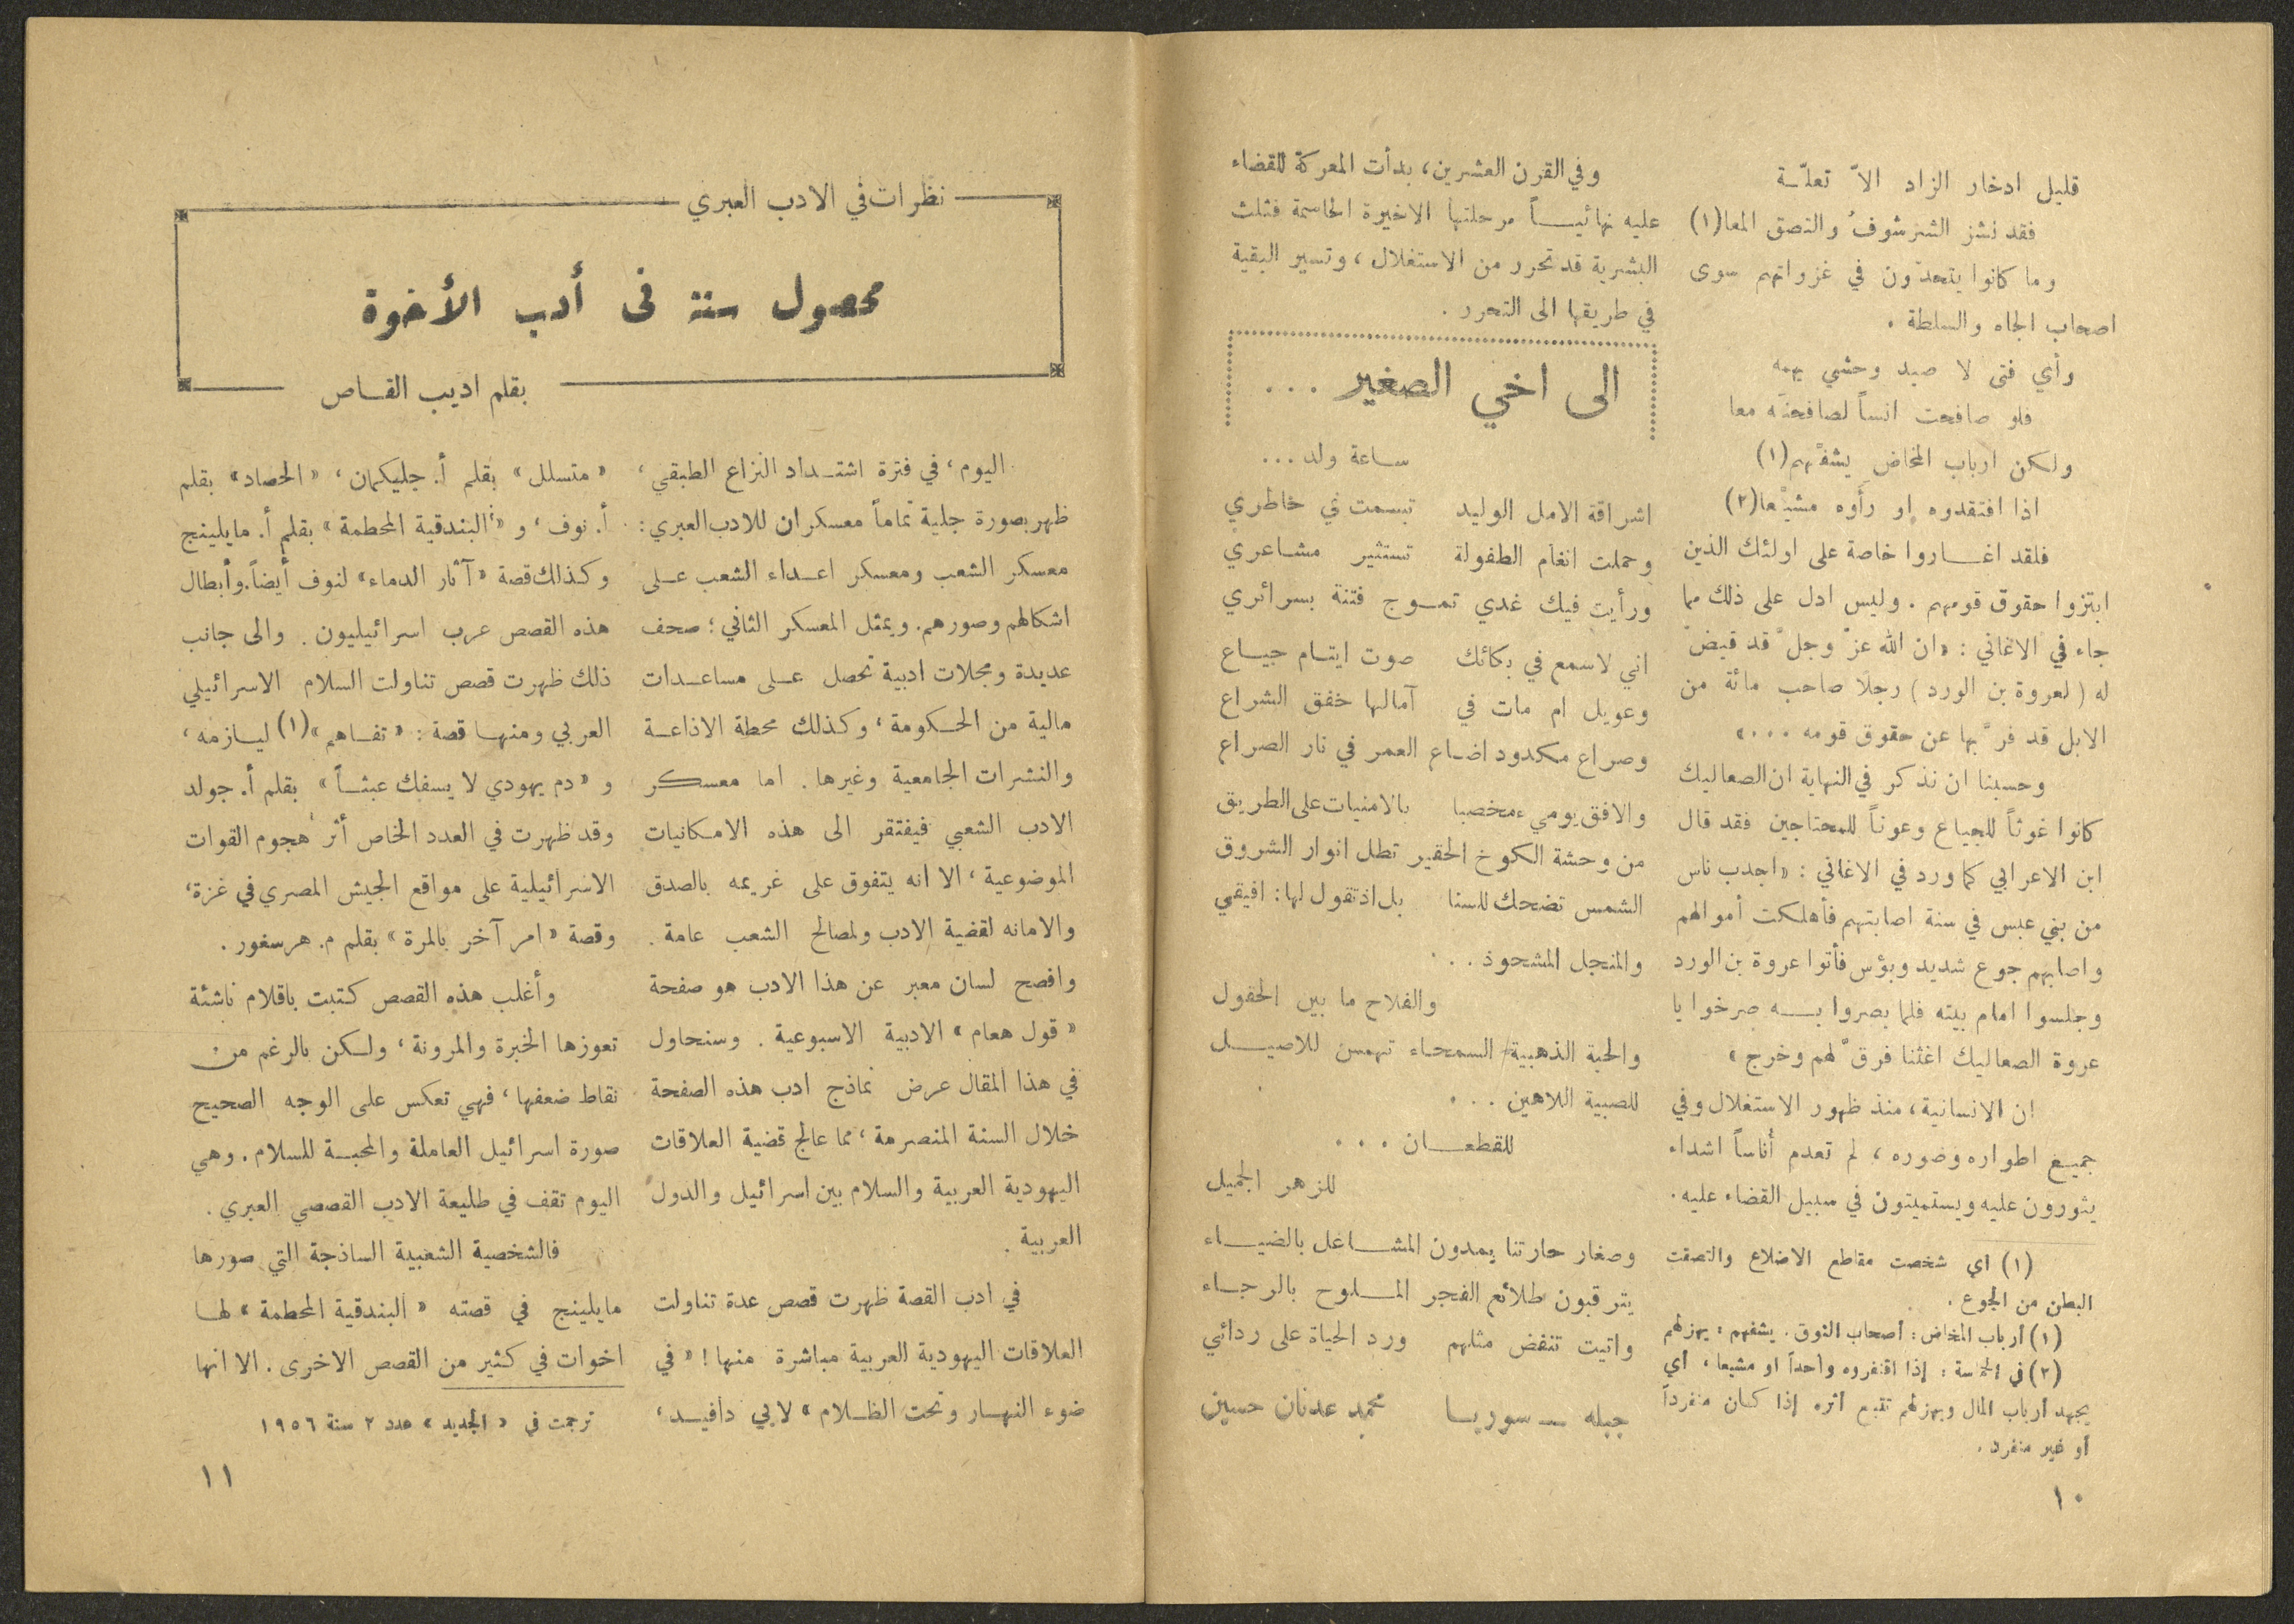 قليل ادخار الزاد الاّ تعلّـة
فقد نشز الشرشوفُ والتصق المعا(١)
وما كانوا يتحدّون في غزواتهم سوى
اصحاب الجاه والسلطة .
وأي فتى لا صيد وحشي يهمه
فلو صافحت انساً لصافحنَه معا
ولكن ارباب المخاض يشفّهم(١)
اذا افتقدوه او رأَوه مشيّعا(٢)
فلقد اغــاروا خاصة على اولئك الذين
ابتزوا حقوق قومهم . وليس ادل على ذلك مما
جاء في الاغاني : «ان الله عزّ وجلّ قد قيض
له ( لعروة بن الورد ) رجلًا صاحب مائة من
الابل قد فرّ بها عن حقوق قومه ...»
وحسبنا ان نذكر في النهاية ان الصعاليك
كانوا غوثاً للجياع وعوناً للمحتاجين فقد قال
ابن الاعرابي كما ورد في الاغاني : «اجدب ناس
من بني عبس في سنة اصابتهم فأهلكت أموالهم
واصابهم جوع شديد وبؤس فأتوا عروة بن الورد
وجلسوا امام بيته فلما بصروا بــه صرخوا يا
عروة الصعاليك اغثنا فرقّ لهم وخرج »
ان الانسانية، منذ ظهور الاستغلال وفي
جميع اطواره وصوره ، لم تعدم أُناساً اشداء
يثورون عليه ويستميتون في سبيل القضاء عليه.
(١) اي شخصت مقاطع الاضلاع والتصقت
البطن من الجوع .
(١) أرباب المخاض : أصحاب النوق . يشفهم : يهزلهم
(٢) في الحماسة : إذا اقتفروه واحداً او مشيعا ، أي
يجهد أرباب المال ويهزلهم تتبع أثره إذا كـان منفرداً
أو غير منفرد .
١٠
وفي القرن العشرين، بدأت المعركة للقضاء
عليه نهائيــاً مرحلتها الاخيرة الحاسمة فثلث
البشرية قد تحرر من الاستغلال ، وتسير البقية
في طريقها الى التحرر .
الى اخي الصغير ...
ساعة ولد ...
اشراقة الامل الوليد تبسمت في خاطري
وحملت انغام الطفولة تستثير مشاعري
ورأيت فيك غدي تمــوج فتنة بسرائري
اني لاسمع في بكائك صوت ايتـام جيـاع
وعويل ام مات في آمالها خفق الشراع
وصراع مكدود اضاع العمر في نار الصراع
والافق يومي ء مخصبا بالامنيات على الطريق
من وحشة الكوخ الحقير تطل انوار الشروق
الشمس تضحك للسنا بل اذ تقول لها: افيقي
والمنجل المشحوذ ...
والفلاح ما بين الحقول
والحبة الذهبية السمحاء تهمس للاصيــل
للصبية اللاهين ...
للقطعــان ...
للزهر الجميل
وصغار حارتنا يمدون المشــاعل بالضيــاء
يترقبون طلائع الفجر المــلوح بالرجــاء
واتيت تنفض مثلهم ورد الحياة على ردائي
جبله ــ سوريـا محمد عدنان حسين
نظرات في الادب العبري
محصول سنة فى أدب الأخوة
بقلم اديب القـاص
اليوم، في فترة اشتـداد النزاع الطبقي،
ظهر بصورة جلية تماماً معسكران للادب العبري:
معسكر الشعب ومعسكر اعـداء الشعب عـلى
اشكالهم وصورهم. ويمثل المعسكر الثاني؛ صحف
عديدة ومجلات ادبية تحصل عــلى مساعــدات
مالية من الحـكومة ، وكذلك محطة الاذاعــة
والنشرات الجامعية وغيرها . اما معسـكر
الادب الشعبي فيفتقر الى هذه الامـكانيات
الموضوعية ، الا انه يتفوق على غريمه بالصدق
والامانه لقضية الادب ولمصالح الشعب عامة .
وافصح لسان معبر عن هذا الادب هو صفحة
« قول هعام » الادبية الاسبوعية . وسنحاول
في هذا المقال عرض نماذج ادب هذه الصفحة
خلال السنة المنصرمة ، مما عالج قضية العلاقات
اليهودية العربية والسلام بين اسرائيل والدول
العربية .
في ادب القصة ظهرت قصص عدة تناولت
العلاقات اليهودية العربية مباشرة منها ! « في
ضوء النهـار وتحت الظـلام » لابي دافيـد ،
« متسلل » بقلم أ. جليكمان ، « الحصاد » بقلم
أ. نوف ، و « البندقية المحطمة » بقلم أ. مايلينج
وكذلك قصة « آثار الدماء » لنوف أيضاً. وأبطال
هذه القصص عرب اسرائيليون . والى جانب
ذلك ظهرت قصص تناولت السلام الاسرائيلي
العربي ومنهـا قصة : « تفـاهم »(١) ليـازمه ،
و « دم يهودي لا يسفك عبثـاً » بقلم أ. جولد
وقد ظهرت في العدد الخاص أثر هجوم القوات
الاسرائيلية على مواقع الجيش المصري في غزة،
وقصة « امر آخر بالمرة » بقلم م. هرسغور .
وأغلب هذه القصص كتبت باقلام ناشئة
تعوزها الخبرة والمرونة ، ولـكن بالرغم من
نقاط ضعفها ، فهي تعكس على الوجه الصحيح
صورة اسرائيل العاملة والمحبــة للسلام. وهي
اليوم تقف في طليعة الادب القصصي العبري .
فالشخصية الشعبية الساذجة التي صورها
مايلينج في قصته « البندقية المحطمة » لهـا
اخوات في كثير من القصص الاخرى . الا انها
ترجمت في « الجديد » عدد ٢ سنة ١٩٥٦
١١